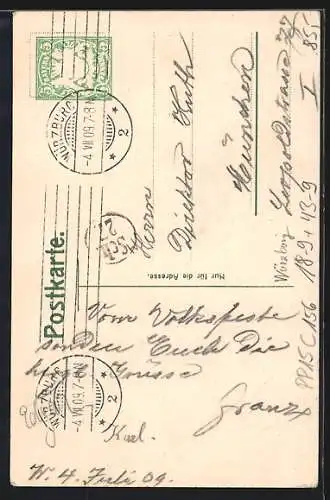 Postkarte.
WÜRZBURG
-4.VII.09.7-8N
2
WÜRZBURG
-4.VII.09.7-8N
2
5 PFENNIG 5
Herrn
Direktor Huth
München
Leopoldstrasse 77
I
Nur für die Adresse.
Vom Volksfeste
senden Euch die
Grüsse
Franz
Karl.
W. 4. Juli 09.
Würzburg
189+43-9
PP15C156
85,-